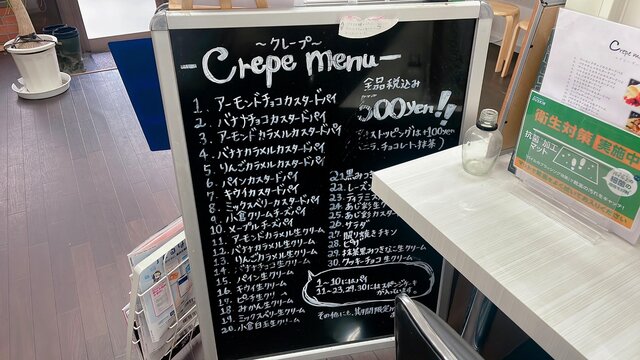 ～クレープ～
Crepe menu
全品税込み
500yen!!
ストッピングは+100yen
チョコレート、抹茶)
1. アーモンドチョコカスタードパイ
2. バナナチョコカスタードパイ
3. アーモンドカラメルカスタードパイ
4. バナナカラメルカスタードパイ
5. りんごカラメルカスタードパイ
6. パインカスタードパイ
7. キウイカスタードパイ
8. ミックスベリーカスタードパイ
9. 小倉クリームチーズパイ
10. メープルチーズパイ
11. アーモンドカラメル生クリーム
12. バナナカラメル生クリーム
13. りんごカラメル生クリーム
14. バナナチョコ生クリーム
15. パイン生クリーム
16. キウイ生クリーム
17. ピーチ生クリーム
18. みかん生クリーム
19. ミックスベリー生クリーム
20. 小倉白玉生クリーム
21. 黒みつ
22. レーズン
23. ティラミス
24. あじ彩生
25. あじ彩カス
26. サラダ
27. 照り焼きチキン
28. ピザ
29. 抹茶黒みつきなこ生クリーム
30. クッキーチョコ生クリーム
1～10にはパイ
11～23、29.30にはスポンジケーキ
が入っています。
その他にも、期間限定
Crepe me
衛生対策 実施中
抗菌加工
マット